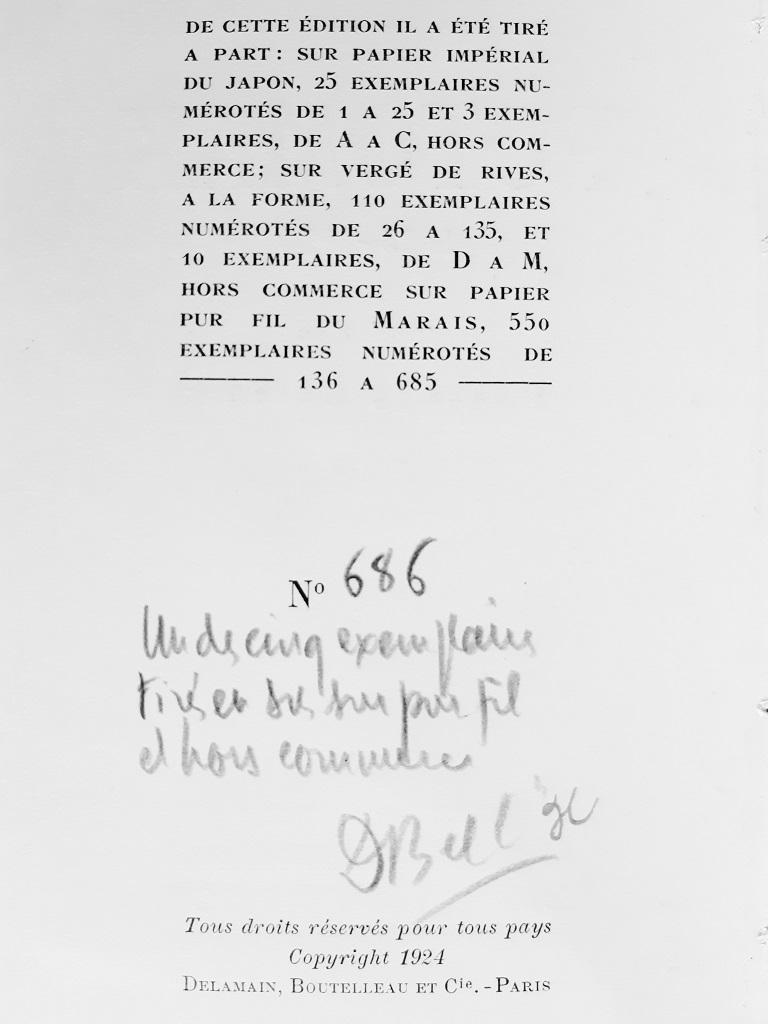 DE CETTE ÉDITION IL A ÉTÉ TIRÉ
A PART : SUR PAPIER IMPÉRIAL
DU JAPON, 25 EXEMPLAIRES NU-
MÉROTÉS DE 1 A 25 ET 3 EXEM-
PLAIRES, DE A A C, HORS COM-
MERCE ; SUR VERGÉ DE RIVES,
A LA FORME, 110 EXEMPLAIRES
NUMÉROTÉS DE 26 A 135, ET
10 EXEMPLAIRES, DE D A M,
HORS COMMERCE SUR PAPIER
PUR FIL DU MARAIS, 550
EXEMPLAIRES NUMÉROTÉS DE
136 A 685
Nº 686
Un des cinq exemplaires
tirés en sus sur pur fil
et hors commerce
Tous droits réservés pour tous pays
Copyright 1924
DELAMAIN, BOUTELLEAU ET Cie. - PARIS